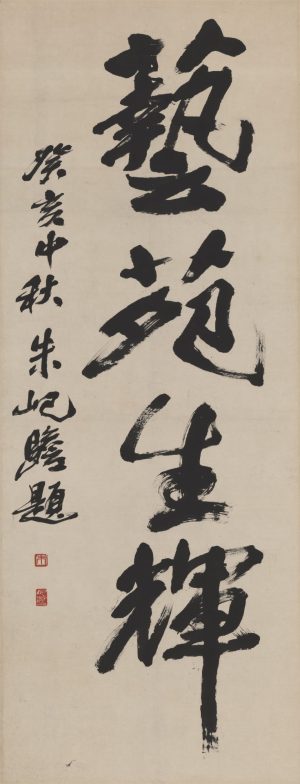 藝苑生輝
癸亥中秋朱屺瞻題